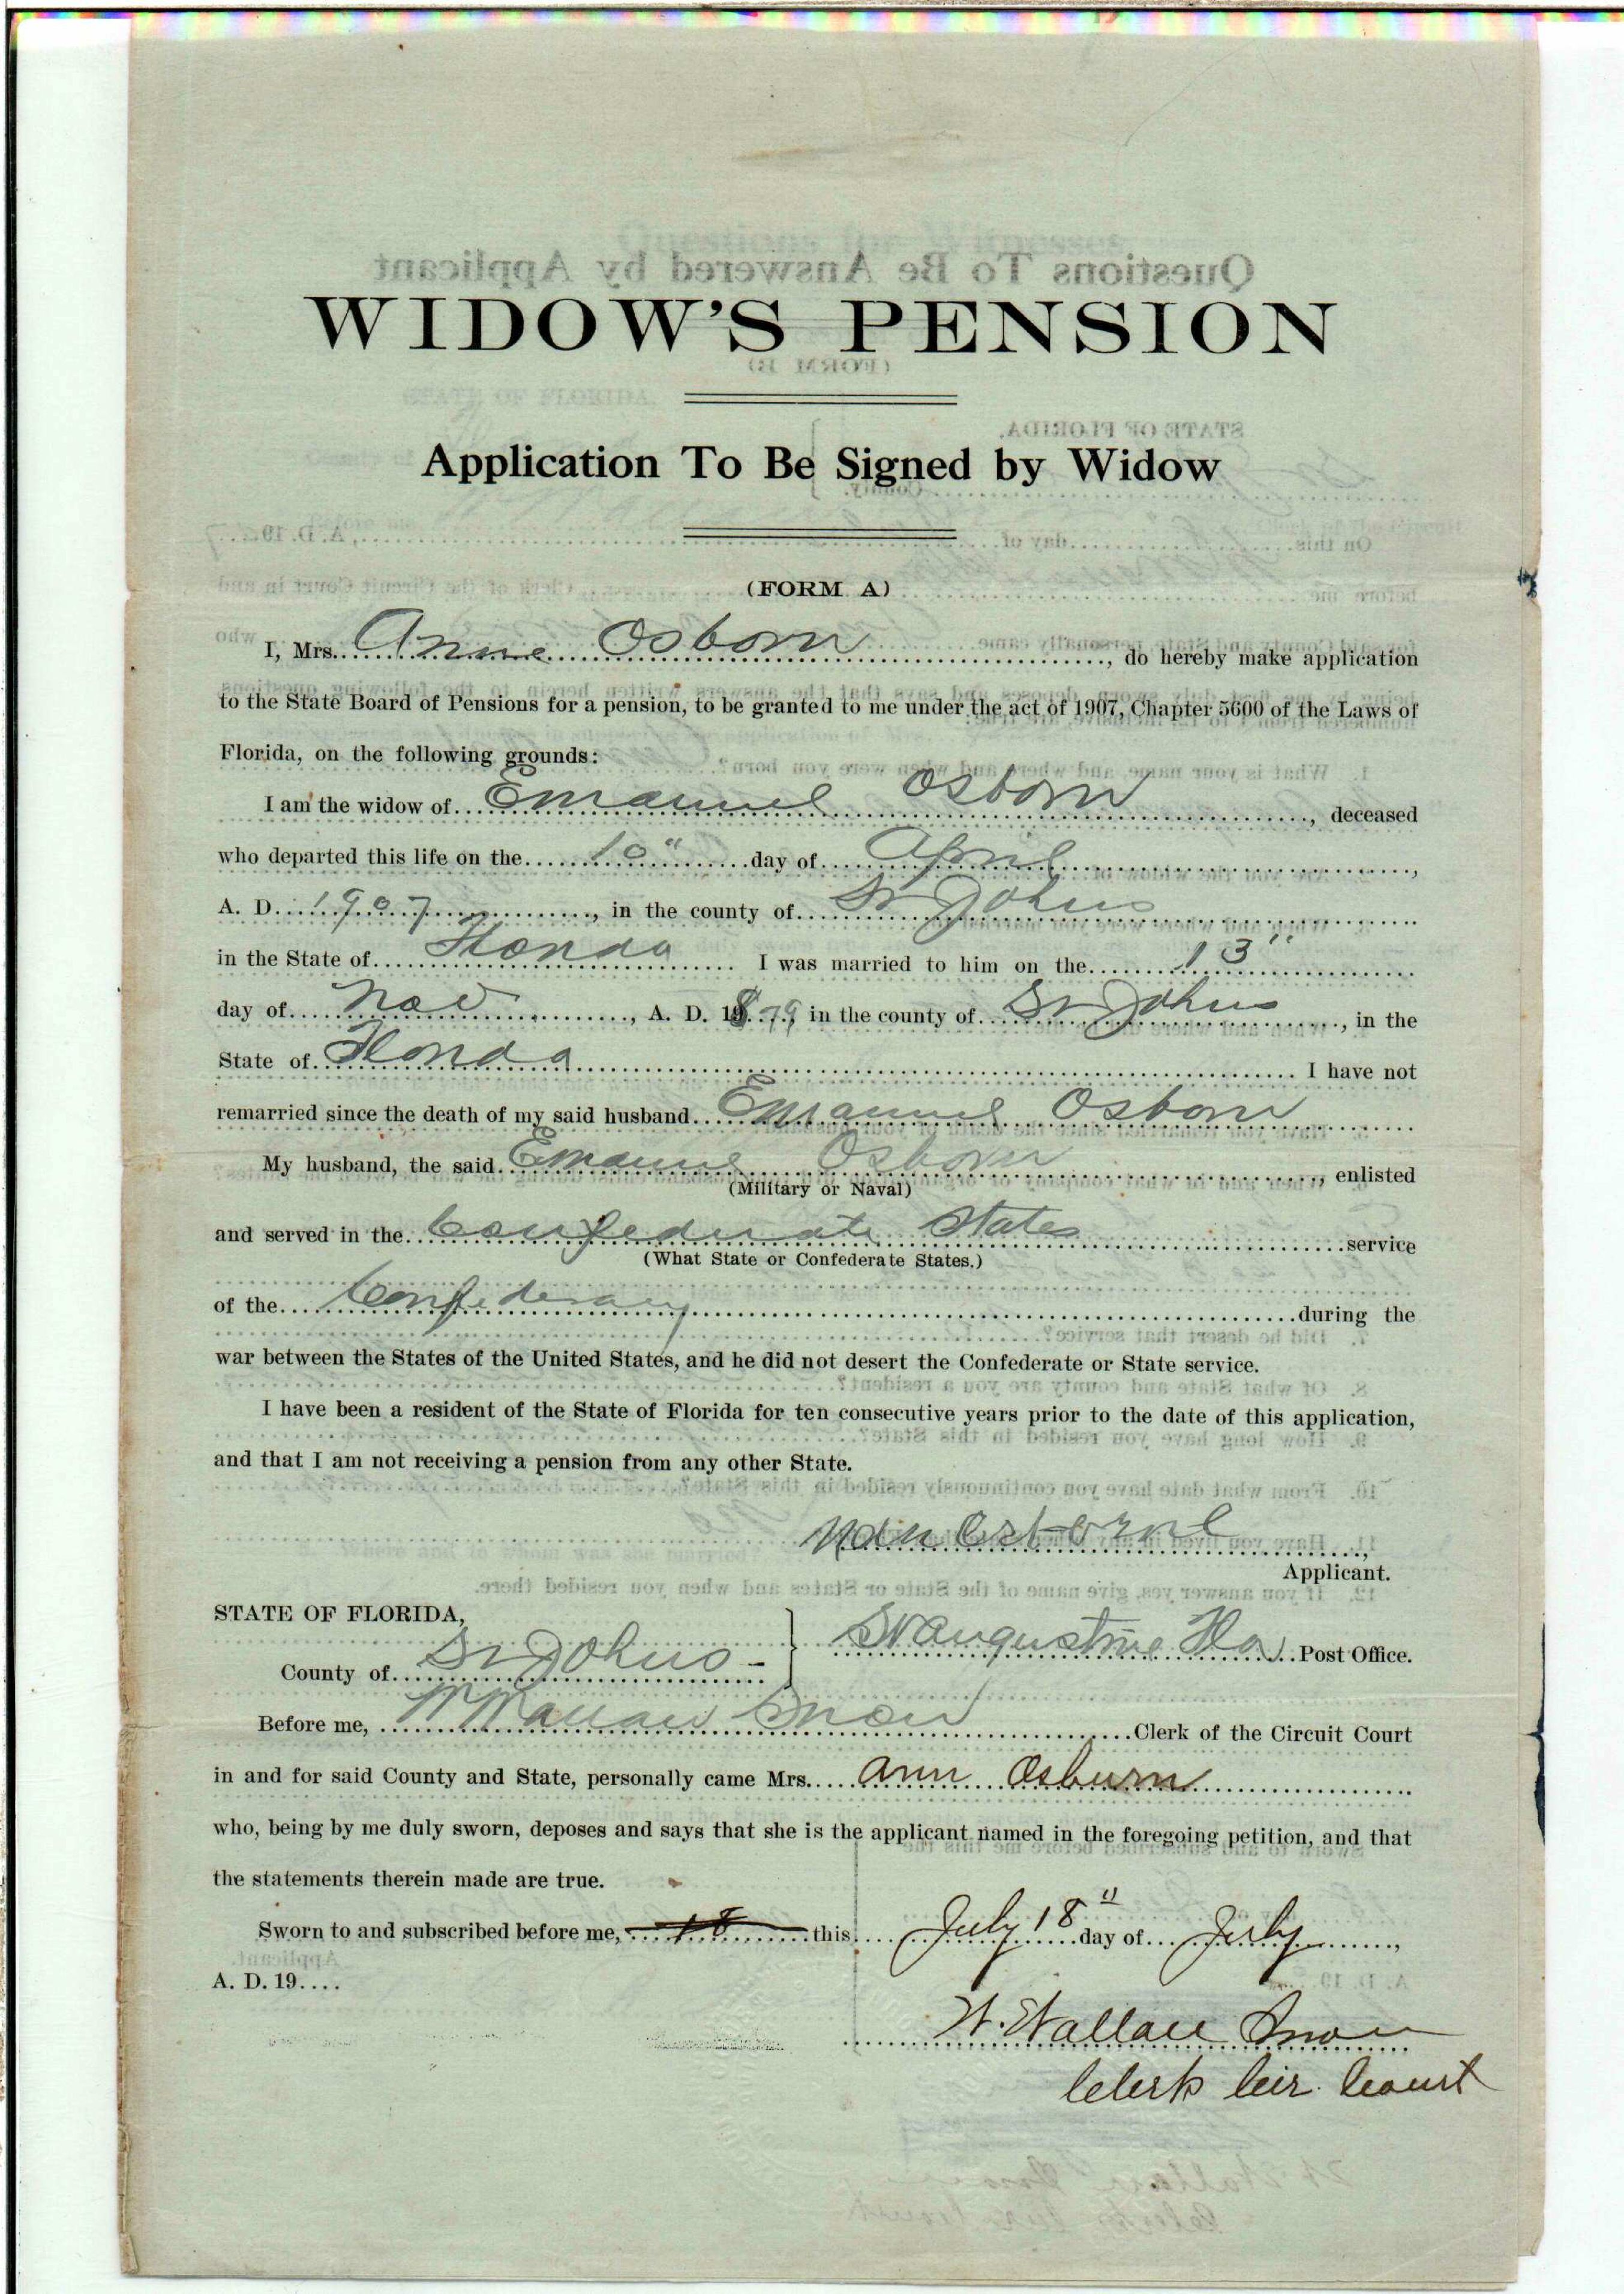 WIDOW'S PENSION
Application To Be Signed by Widow
(FORM A)
I, Mrs. Anne Osborn, do hereby make application
to the State Board of Pensions for a pension, to be granted to me under the act of 1907, Chapter 5600 of the Laws of
Florida, on the following grounds:
I am the widow of Emanuel Osborn, deceased
who departed this life on the 10" day of April,
A. D. 1907, in the county of St Johns
in the State of Florida I was married to him on the 13"
day of Nov., A. D. 1879, in the county of St Johns, in the
State of Florida I have not
remarried since the death of my said husband Emanuel Osborn
My husband, the said Emanuel Osborn, enlisted
(Military or Naval)
and served in the Confederate States service
(What State or Confederate States.)
of the Confederacy during the
war between the States of the United States, and he did not desert the Confederate or State service.
I have been a resident of the State of Florida for ten consecutive years prior to the date of this application,
and that I am not receiving a pension from any other State.
Osborne,
Applicant.
STATE OF FLORIDA,
County of St Johns - St Augustine Fla Post Office.
Before me, W Wallace Snow Clerk of the Circuit Court
in and for said County and State, personally came Mrs. Ann Osburn
who, being by me duly sworn, deposes and says that she is the applicant named in the foregoing petition, and that
the statements therein made are true.
Sworn to and subscribed before me, 18 this July 18" day of July,
A. D. 19....
W. Wallace Snow
Clerk Cir. Court